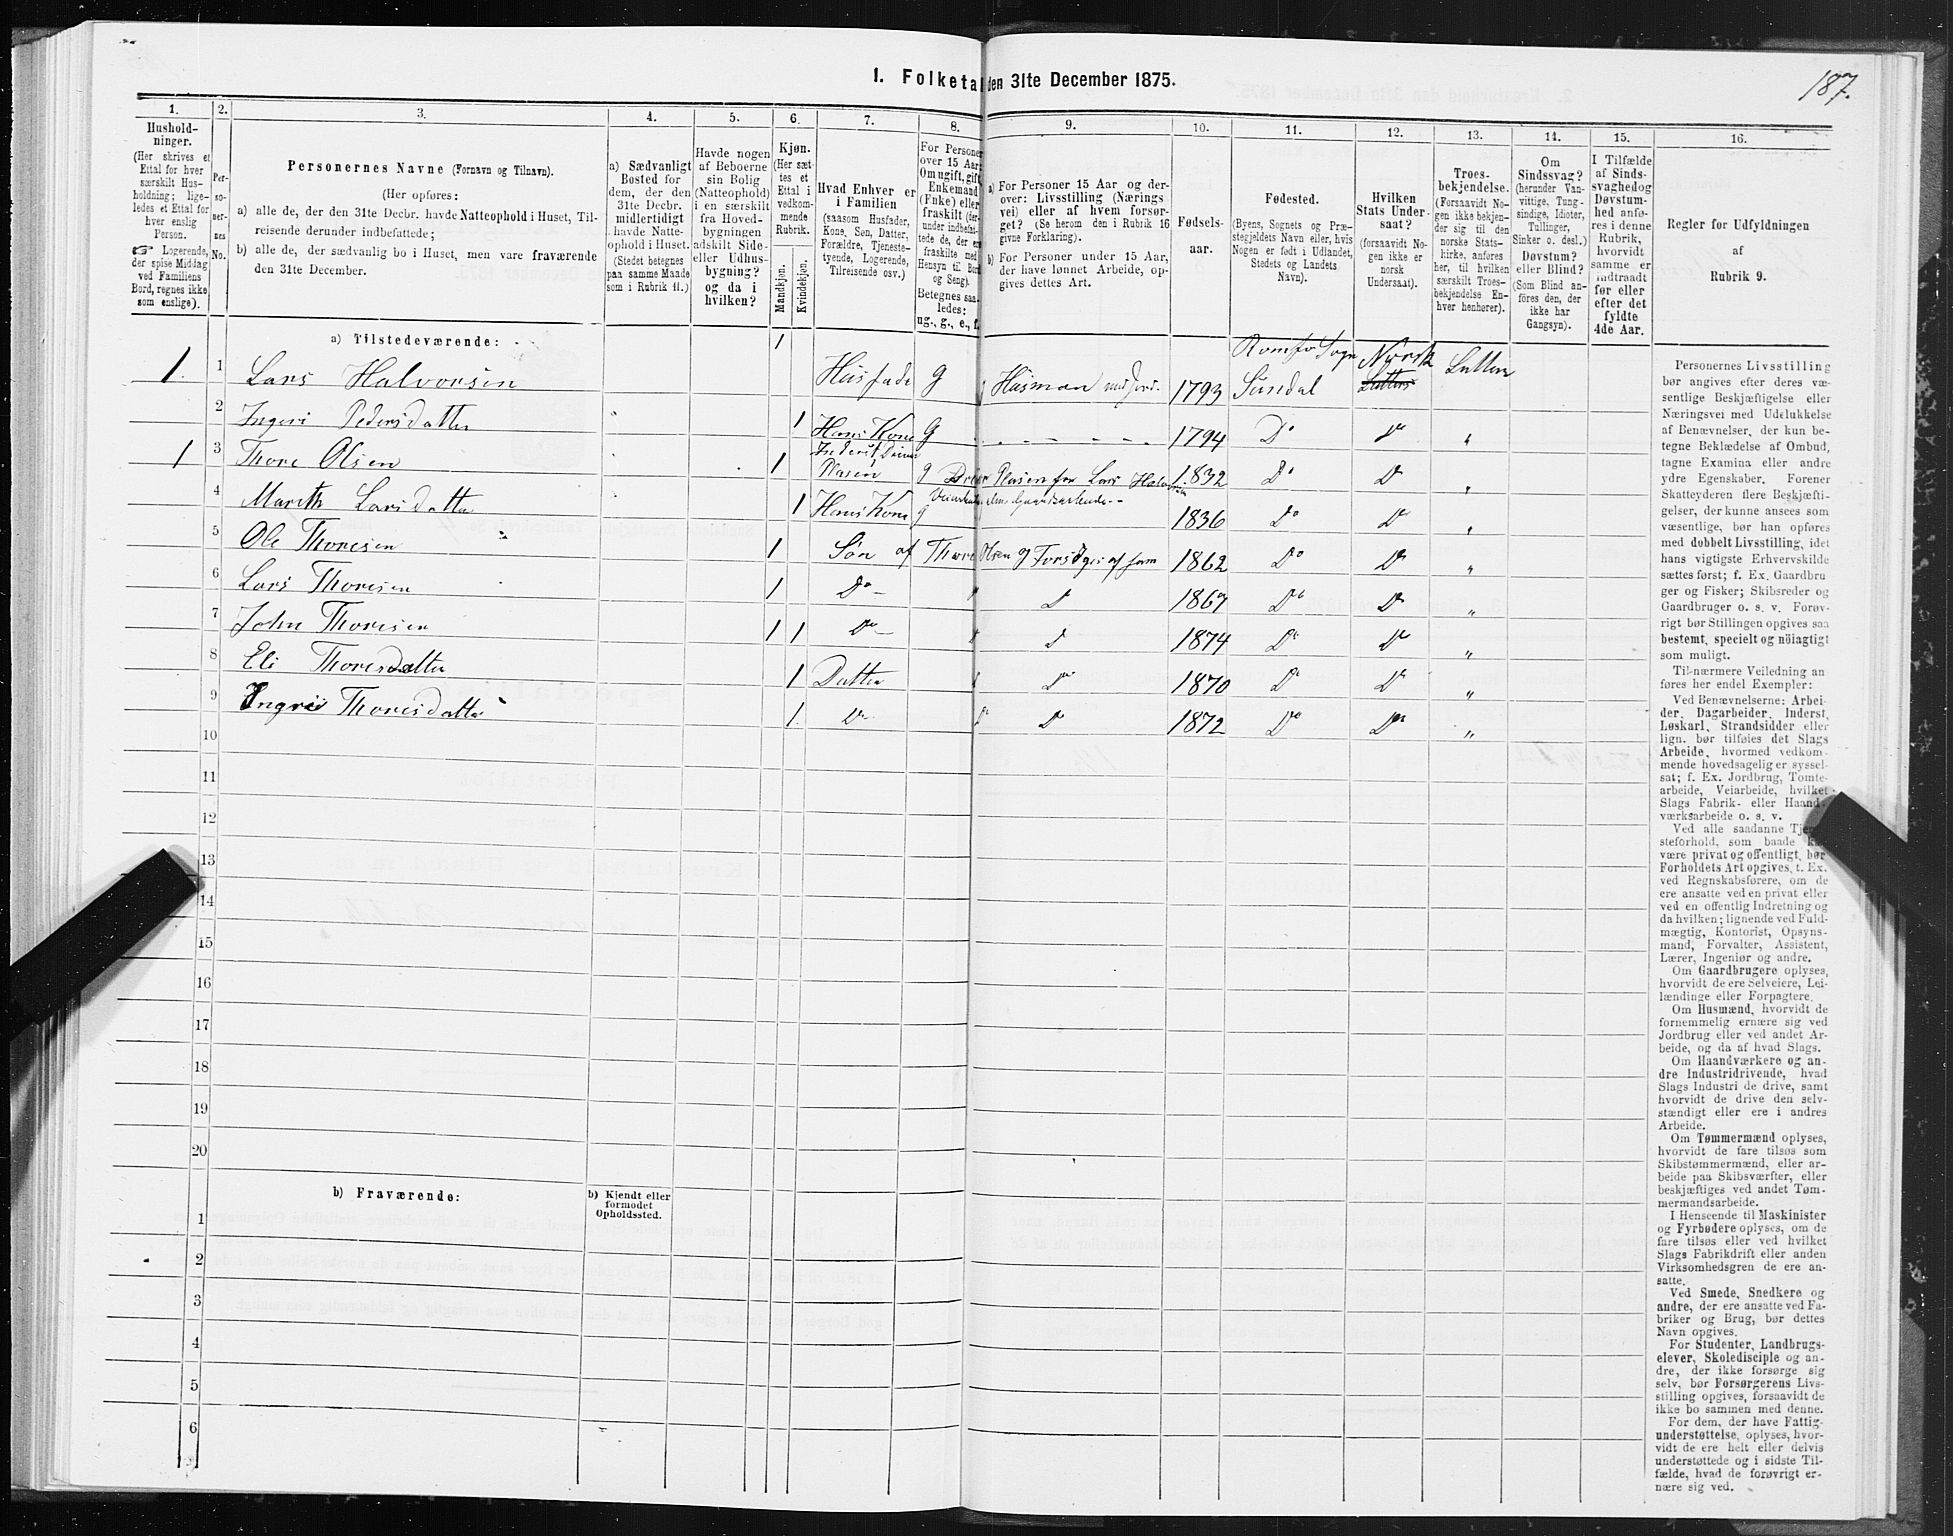 187.
1. Folketal den 31te December 1875.
1.
Hushold-
ninger.
(Her skrives et
Ettal for hver
særskilt Hus-
holdning; lige-
ledes et Ettal for
hver enslig
Person.
☞ Logerende,
der spise Middag
ved Familiens
Bord, regnes ikke
som enslige).
2.
Per-
so-
ner-
nes
No.
3.
Personernes Navne (Fornavn og Tilnavn).
(Her opføres:
a) alle de, der den 31te Decbr. havde Natteophold i Huset, Til-
reisende derunder indbefattede;
b) alle de, der sædvanlig bo i Huset, men vare fraværende
den 31te December.
4.
a) Sædvanligt
Bosted for
dem, der den
31te Decbr.
midlertidigt
havde Natte-
ophold i Huset.
(Stedet betegnes
paa samme Maade
som i Rubrik 11.)
5.
Havde nogen
af Beboerne
sin Bolig
(Natteophold)
i en særskilt
fra Hoved-
bygningen
adskilt Side-
eller Udhus-
bygning?
og da i
hvilken?
6.
Kjøn.
(Her sæt-
tes et
Ettal i
vedkom-
mende
Rubrik.
Mandkjøn.
Kvindekjøn.
7.
Hvad Enhver er
i Familien
(saasom Husfader,
Kone, Søn, Datter,
Forældre, Tjeneste-
tyende, Logerende,
Tilreisende osv.)
8.
For Personer
over 15 Aar:
Om ugift, gift,
Enkemand
(Enke) eller
fraskilt (der-
under indbefat-
tede de, der ere
fraskilte med
Hensyn til Bord
og Seng).
Betegnes saa-
ledes:
ug., g., e., f.
9.
a) For Personer 15 Aar og der-
over: Livsstilling (Nærings
vei) eller af hvem forsør-
get? (Se herom den i Rubrik 16
givne Forklaring).
b) For Personer under 15 Aar,
der have lønnet Arbeide, op-
gives dettes Art.
10.
Fødsels-
aar.
11.
Fødested.
(Byens, Sognets og Præ-
stegjeldets Navn eller, hvis
Nogen er født i Udlandet,
Stedets og Landets
Navn).
12.
Hvilken
Stats Under-
saat?
(forsaavidt No-
gen ikke er
norsk
Undersaat).
13.
Troes-
bekjendelse.
(Forsaavidt No-
gen ikke bekjen-
der sig til den
norske Stats-
kirke, anføres
her, til hvilken
særskilt Troes-
bekjendelse En-
hver henhører).
14.
Om
Sindssvag?
(herunder Van-
vittige, Tung-
sindige, Idioter,
Tullinger,
Sinker o. desl.)
Døvstum?
eller Blind?
(Som Blind an-
føres den, der
ikke har
Gangsyn).
15.
I Tilfælde
af Sinds-
svaghed og
Døvstum-
hed anfø-
res i denne
Rubrik,
hvorvidt
samme er
indtraadt
før eller
efter det
fyldte
4de Aar.
16.
Regler før Udfyldningen
af
Rubrik 9.
a) Tilstedeværende:
1 1 Lars Halvorsen 1 Husfader g Husman med Jord. 1793 Romfo Sogn Sundal Norsk Luttersk
2 Ingeri Pedersdatter 1 Hans Kone g - - - - - 1794 Do Do "
1 3 Thore Olsen 1 Inderst Driver Plasen g Driver Plasen for Lars Halvorsen 1832 Do Do "
4 Marith Larsdatter 1 Hans Kone g 1836 Do Do "
5 Ole Thoresen 1 Søn af Thore Olsen og Forsørges af ham 1862 Do Do "
6 Lars Thoresen 1 Do - D 1867 Do Do "
7 John Thoresen 1 1 Do - D 1874 Do Do "
8 Eli Thoresdatter 1 Datter Do 1870 Do Do "
9 Ingri Thoresdatter 1 Do Do 1872 Do Do "
10
11
12
13
14
15
16
17
18
19
20
b) Fraværende:
b) Kjendt eller
formodet
Opholdssted.
1
2
3
4
5
6
Personernes Livsstilling
bør angives efter deres væ-
sentlige Beskjæftigelse eller
Næringsvei med Udelukkelse
af Benævnelser, der kun be-
tegne Beklædelse af Ombud,
tagne Examina eller andre
ydre Egenskaber. Forener
Skatteyderen flere Beskjæfti-
gelser, der kunne ansees som
væsentlige, bør han opføres
med dobbelt Livsstilling, idet
hans vigtigste Erhvervskilde
sættes først; f. Ex. Gaardbru
ger og Fisker; Skibsreder og
Gaardbruger o. s. v. Forøv-
rigt bør Stillingen opgives saa
bestemt, specielt og nöiagtigt
som muligt.
Til nærmere Veiledning an
føres her endel Exempler:
Ved Benævnelserne: Arbei-
der, Dagarbeider, Inderst,
Løskarl, Strandsidder eller
lign. bør tilføies det Slags
Arbeide, hvormed vedkom-
mende hovedsagelig er syssel-
sat; f. Ex. Jordbrug, Tomte-
arbeide, Veiarbeide, hvilket
Slags Fabrik- eller Haand-
værksarbeide o. s. v.
Ved alle saadanne Tjene-
steforhold, som baade kan
være privat og offentligt, bør
Forholdets Art opgives, t. Ex.
ved Regnskabsførere, om de
ere ansatte ved en privat eller
ved en offentlig Indretning og
da hvilken; lignende ved Fuld-
mægtig, Kontorist, Opsyns-
mand, Forvalter, Assistent,
Lærer, Ingeniør og andre.
Om Gaardbrugere oplyses,
hvorvidt de ere Selveiere, Lei-
lændinge eller Forpagtere.
Om Husmænd, hvorvidt de
fornemmelig ernære sig ved
Jordbrug eller ved andet Ar-
beide, og da af hvad Slags.
Om Haandværkere og an-
dre Industridrivende, hvad
Slags Industri de drive, samt
hvorvidt de drive den selv-
stændigt eller ere i andres
Arbeide.
Om Tømmermænd oplyses,
hvorvidt de fare tilsøs som
Skibstømmermænd, eller ar-
beide paa Skibsværfter, eller
beskjæftiges ved andet Tøm-
mermandsarbeide.
I Henseende til Maskinister
og Fyrbødere oplyses, om de
fare tilsøs eller ved hvilket
Slags Fabrikdrift eller anden
Virksomhedsgren de ere an-
satte.
Ved Smede, Snedkere og
andre, der ere ansatte ved Fa-
briker og Brug, bør dettes
Navn opgives.
For Studenter, Landbrugs-
elever, Skoledisciple og an-
dre, der ikke forsørge sig
selv, bør Forsørgerens Livs-
stilling opgives, forsaavidt de
ikke bo sammen med denne.
For dem, der have Fattig-
understøttelse, oplyses, hvor-
vidt de ere helt eller delvis
understøttede og i sidste Til-
fælde, hvad de forøvrigt er-
nære sig ved.